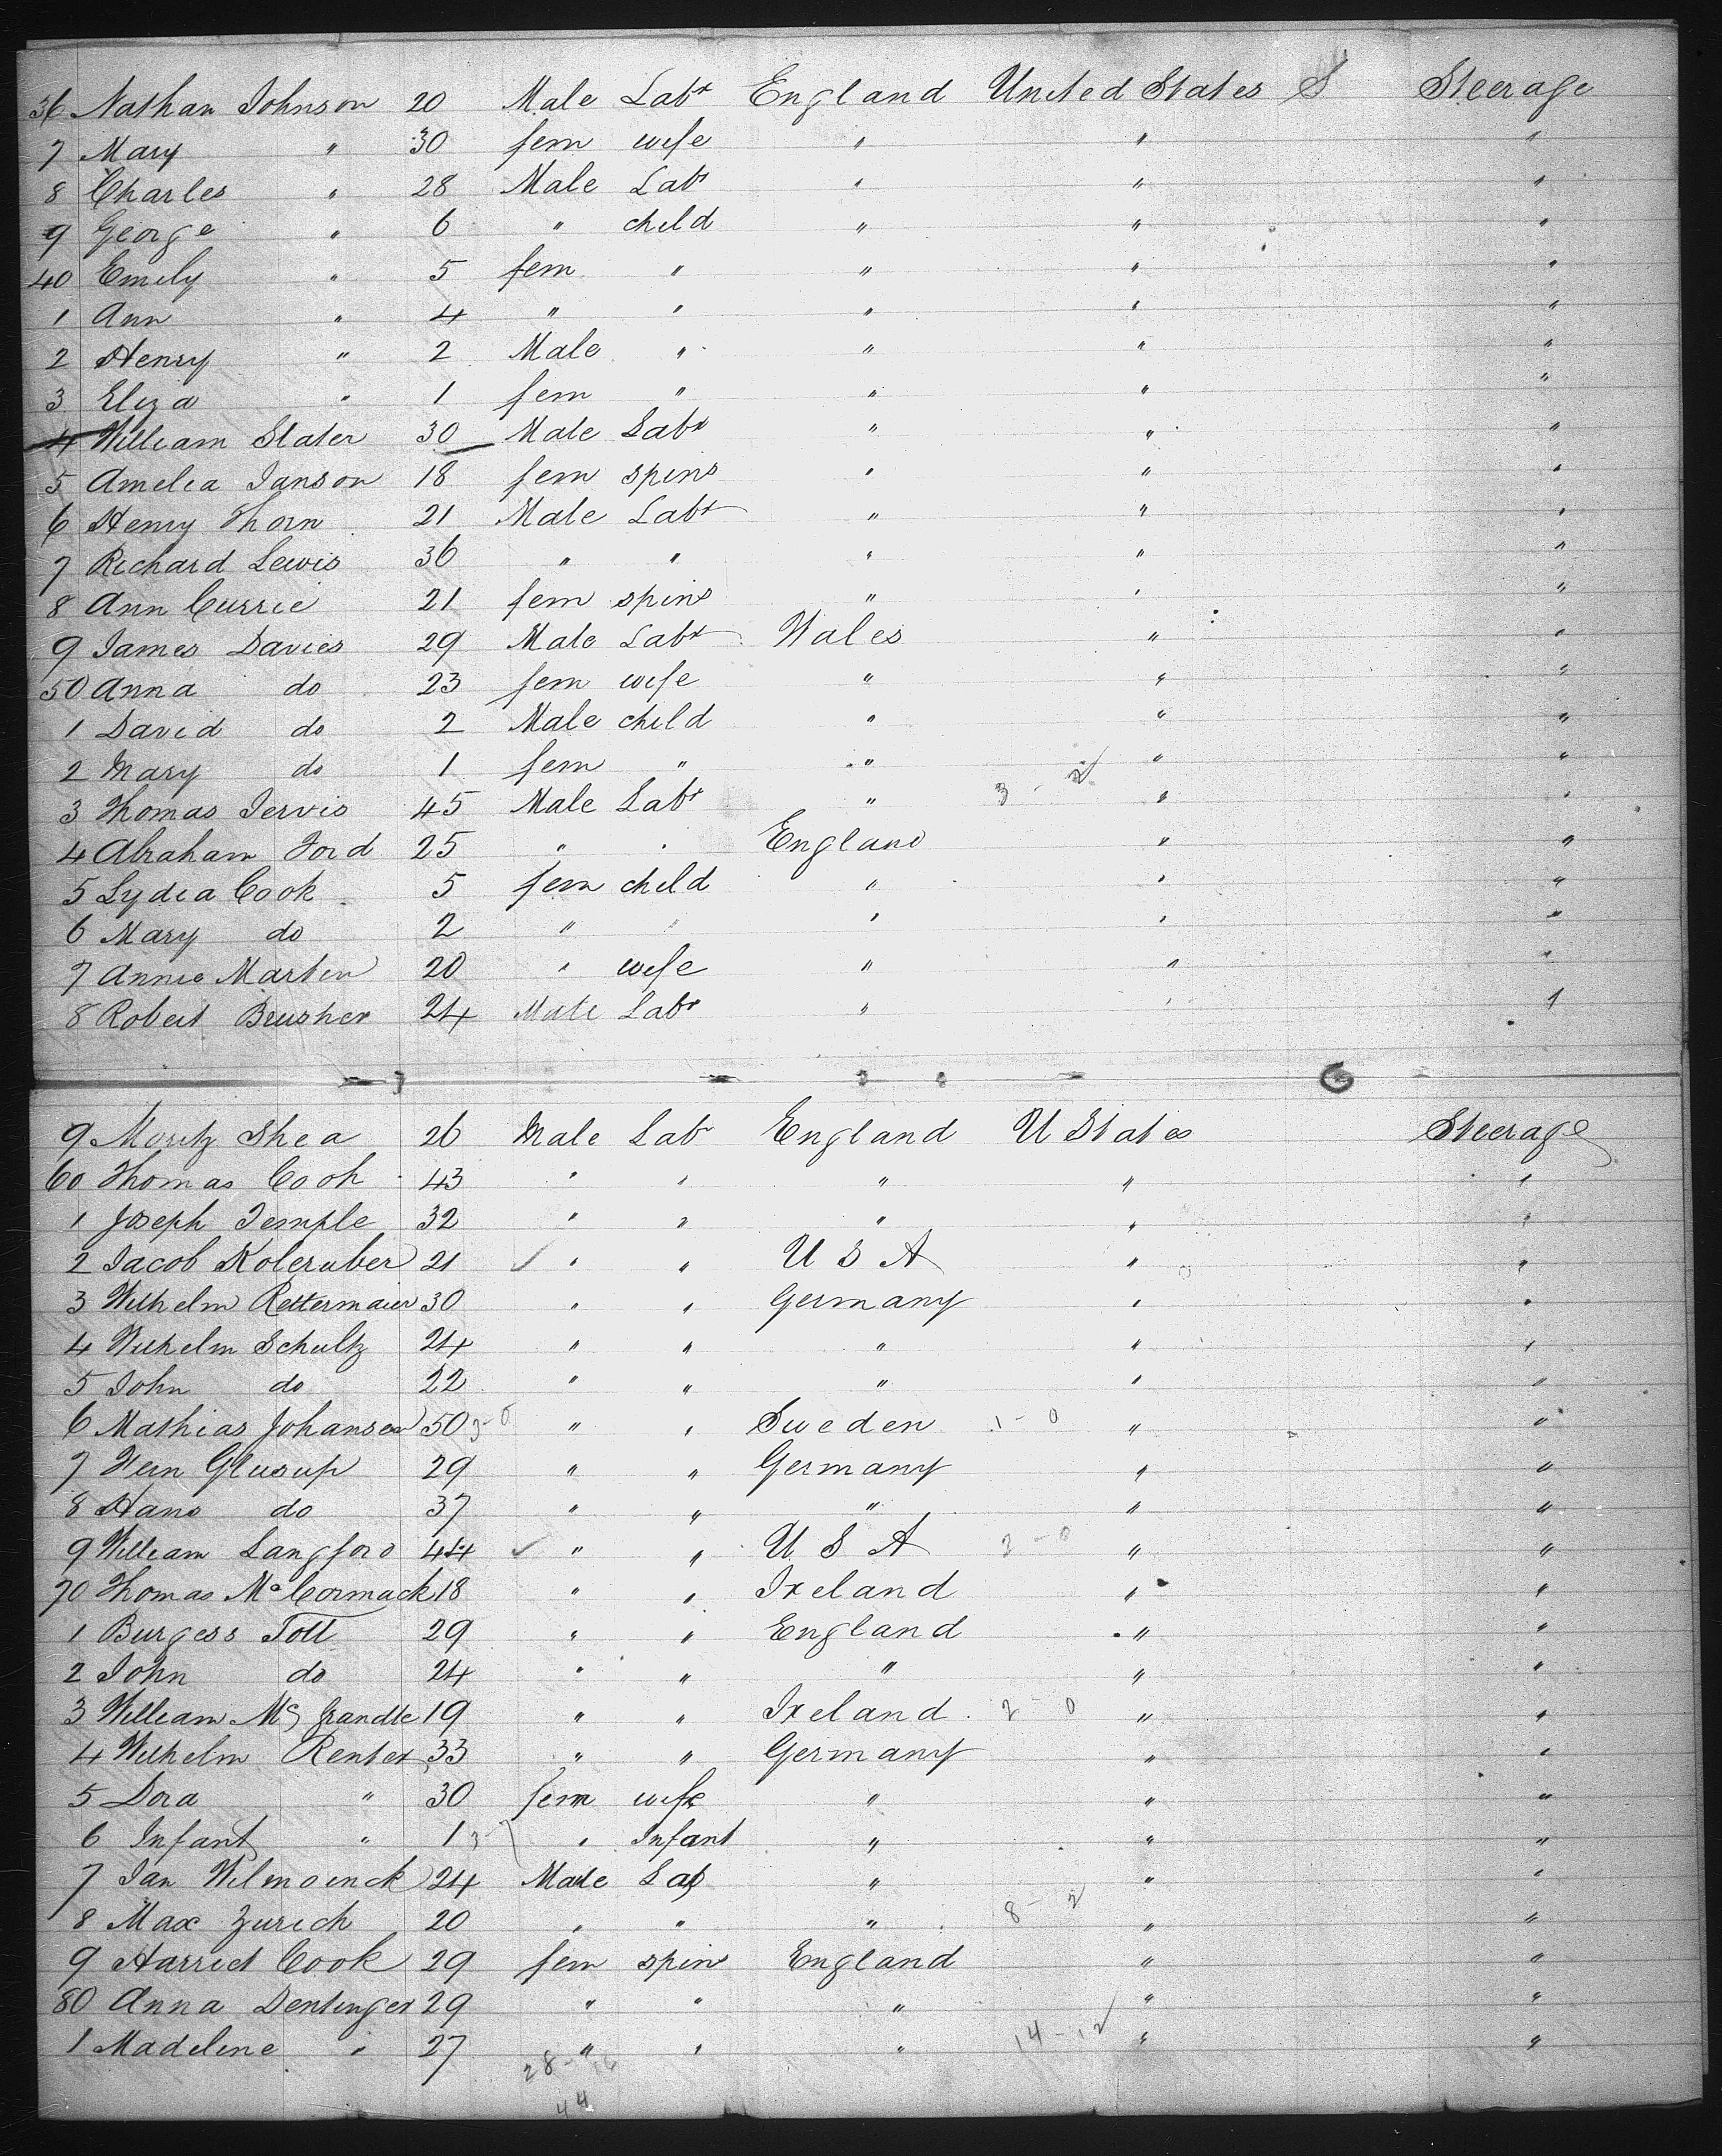 36 Nathan Johnson 20 Male Labr England United States S Steerage
7 Mary " 30 fem wife " " "
8 Charles " 28 Male Labr " " "
9 George " 6 " child " " "
40 Emily " 5 fem " " " "
1 Ann " 4 " " " " "
2 Henry " 2 Male " " " "
3 Eliza " 1 fem " " " "
4 William Slater 30 Male Labr " " "
5 Amelia Janson 18 fem spins " " "
6 Henry Thorn 21 Male Labr " " "
7 Richard Lewis 36 " " " " "
8 Ann Currie 21 fem spins " " "
9 James Davies 29 Male Labr Wales " "
50 Anna do 23 fem wife " " "
1 David do 2 Male child " " "
2 Mary do 1 fem " " " "
3 Thomas Jervis 45 Male Labr " 3 - 2 " "
4 Abraham Ford 25 " " England " "
5 Lydia Cook 5 fem child " " "
6 Mary do 2 " " " " "
7 Annie Martin 20 " wife " " "
8 Robert Brusher 24 Male Labr " " "
9 Moritz Shea 26 Male Lab England U States Steerage
60 Thomas Cook 43 " " " " "
1 Joseph Temple 32 " " " " "
2 Jacob Koleruber 21 ✓ " " U S A " "
3 Wilhelm Rettermaier 30 " " Germany " "
4 Wilhelm Schultz 24 " " " " "
5 John do 22 " " " " "
6 Mathias Johansen 50 3-0 " " Sweden 1-0 " "
7 Glusup 29 " " Germany " "
8 Hans do 37 " " " " "
9 William Langford 44 ✓ " " U S A 2-0 " "
70 Thomas McCormack 18 " " Ireland " "
1 Burgess Tott 29 " " England " "
2 John do 24 " " " " "
3 William Mc Grandle 19 " " Ireland 2-0 " "
4 Wilhelm Renter 33 " " Germany " "
5 Dora " 30 fem wife " " "
6 Infant " 1 " Infant " " "
7 Jan Wilmoinck 24 Male Lab " " "
8 Max Zurich 20 " " " 8-2 " "
9 Harriet Cook 29 fem spin England " "
80 Anna Dentinger 29 " " " " "
1 Madeline " 27 " " " 14-12 " "
28-16
44